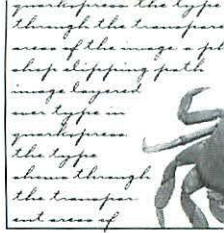 quarkxpress the type
through the transpar
areas of the image a ph
shop clipping path
image layered
over type in
quarkxpress
the type
shows through
the transpar
ent areas of